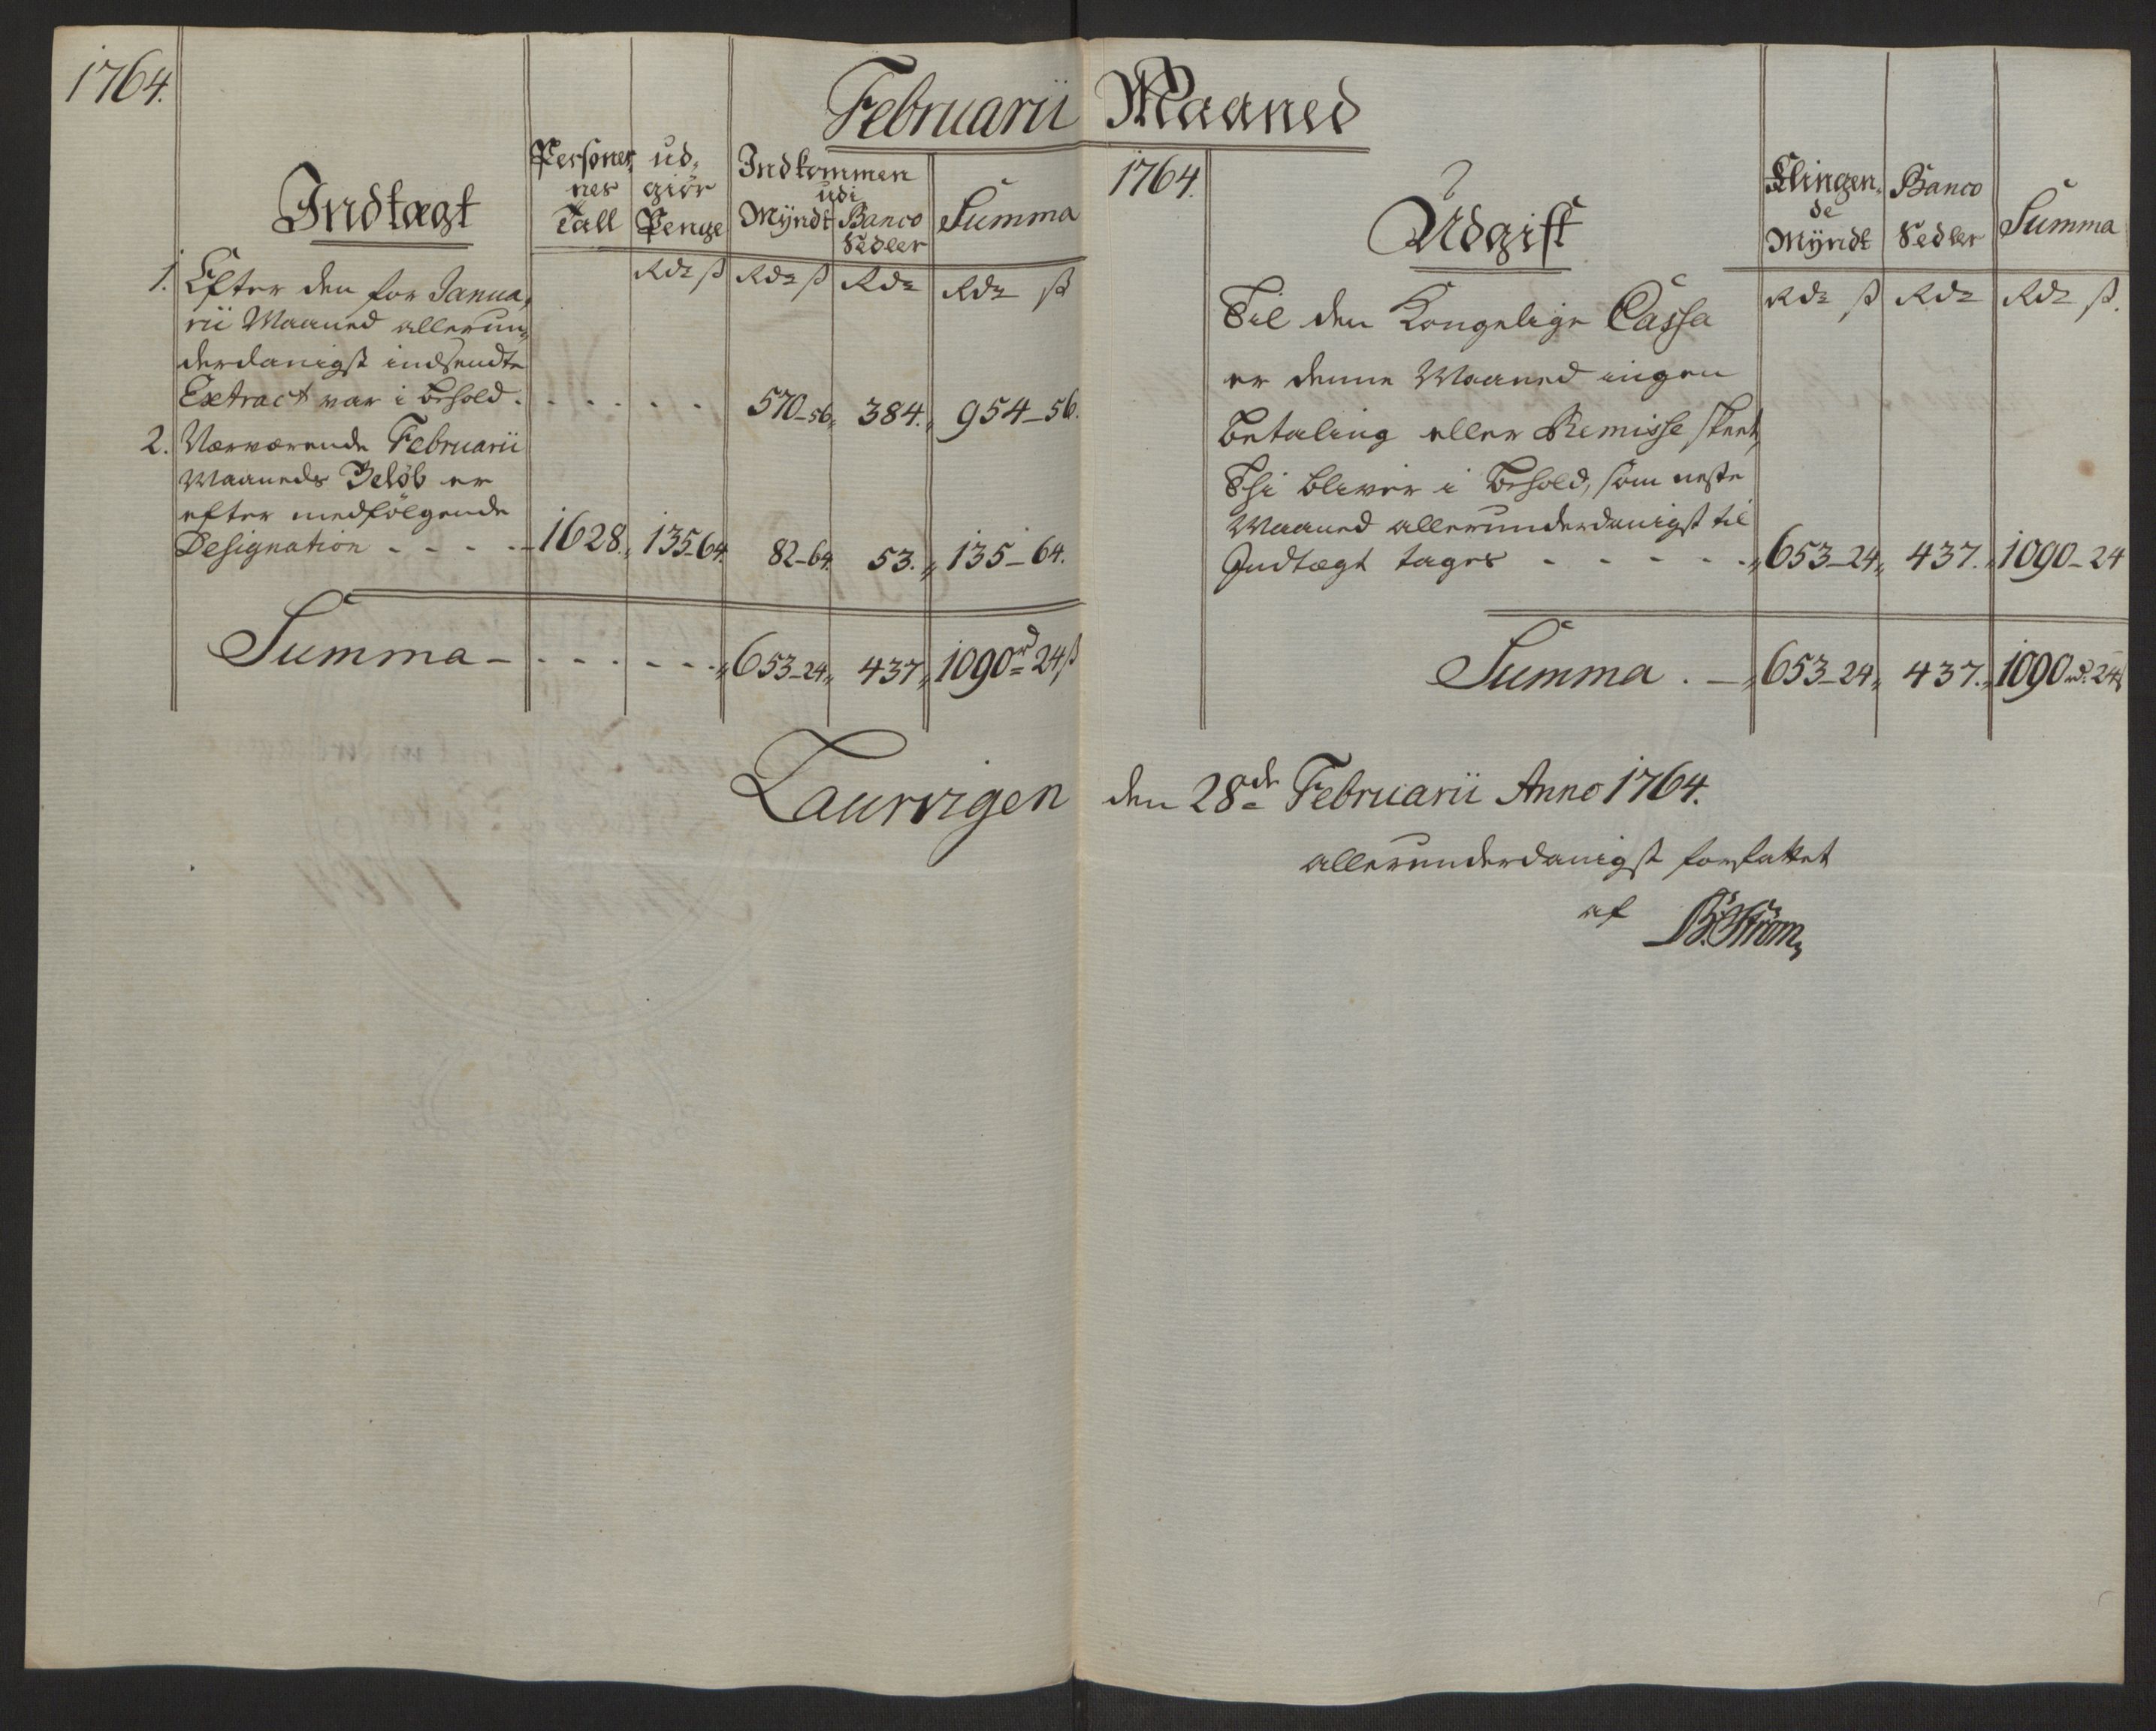 1764.
Februarii Maaned
Indtægt
Personer,
nes
Tall
ud,
giør
Penge
Indkommen
udi
Mÿndt
Banco
Sedler
Summa
Rdr ß Rdr ß Rdr Rdr ß
1. Efter den for Janua,
rii Maaned allerun,
derdanigst indsendte
Extract var i behold . . . . . . 570-56„ 384.„ 954-56.
2. Nærværende Februarii
Maaneds Beløb er
efter medfølgende
Designation - - - - 1628„ 135-64. 82-64. 53.„ 135-64.
Summa - . . . . . . „653-24„ 437„ 1090rd 24ß
1764.
Udgift
Klingen,
de
Mÿndt
Banco
Sedler
Summa
Rdr ß Rdr Rdr ß.
Til den Kongelige Cassa
er denne Maaned ingen
Betaling eller Remisse skeet,
Thi bliver i Behold, som neste
Maaned allerunderdanigst til
Indtægt tages - - - - - „653-24„ 437.„ 1090-24
Summa . - „653-24„ 437.„ 1090rd. 24ß
Laurvigen den 28de Februarii Anno 1764.
allerunderdanigst forfattet
af